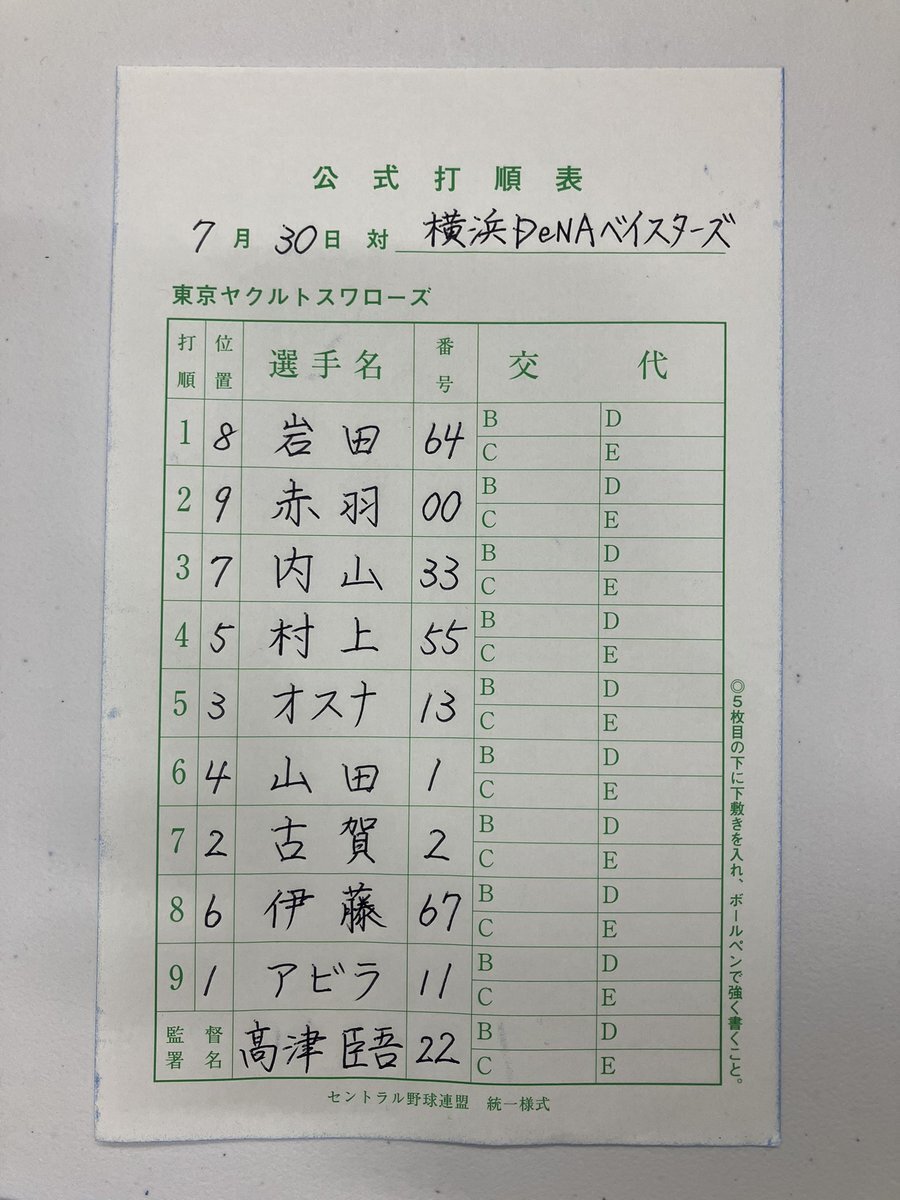 公式打順表
7月30日対 横浜DeNAベイスターズ
東京ヤクルトスワローズ
打順 位置 選手名 番号 交代
1 8 岩田 64 B D C E
2 9 赤羽 00 B D C E
3 7 内山 33 B D C E
4 5 村上 55 B D C E
5 3 オスナ 13 B D C E
6 4 山田 1 B D C E
7 2 古賀 2 B D C E
8 6 伊藤 67 B D C E
9 1 アビラ 11 B D C E
監督署名 髙津臣吾 22 B D C E
セントラル野球連盟 統一様式
◎5枚目の下に下敷きを入れ、ボールペンで強く書くこと。